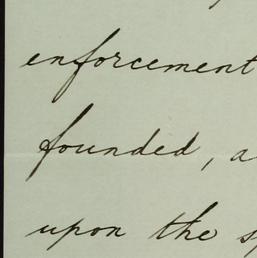 enforcement
founded, a
upon the s